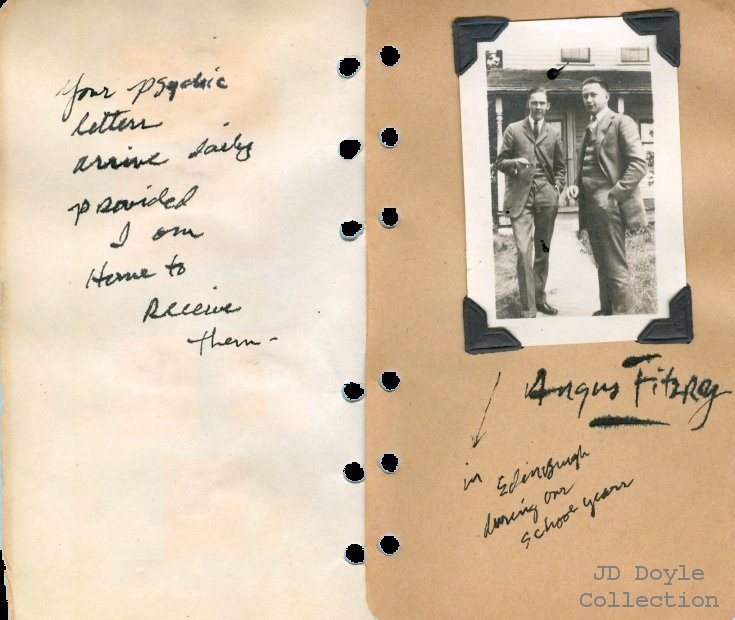 Your psychic
letters
arrive daily
provided
I am
Home to
Receive
them-
Angus Fitzroy
in Edinburgh
during our
School years
JD Doyle
Collection